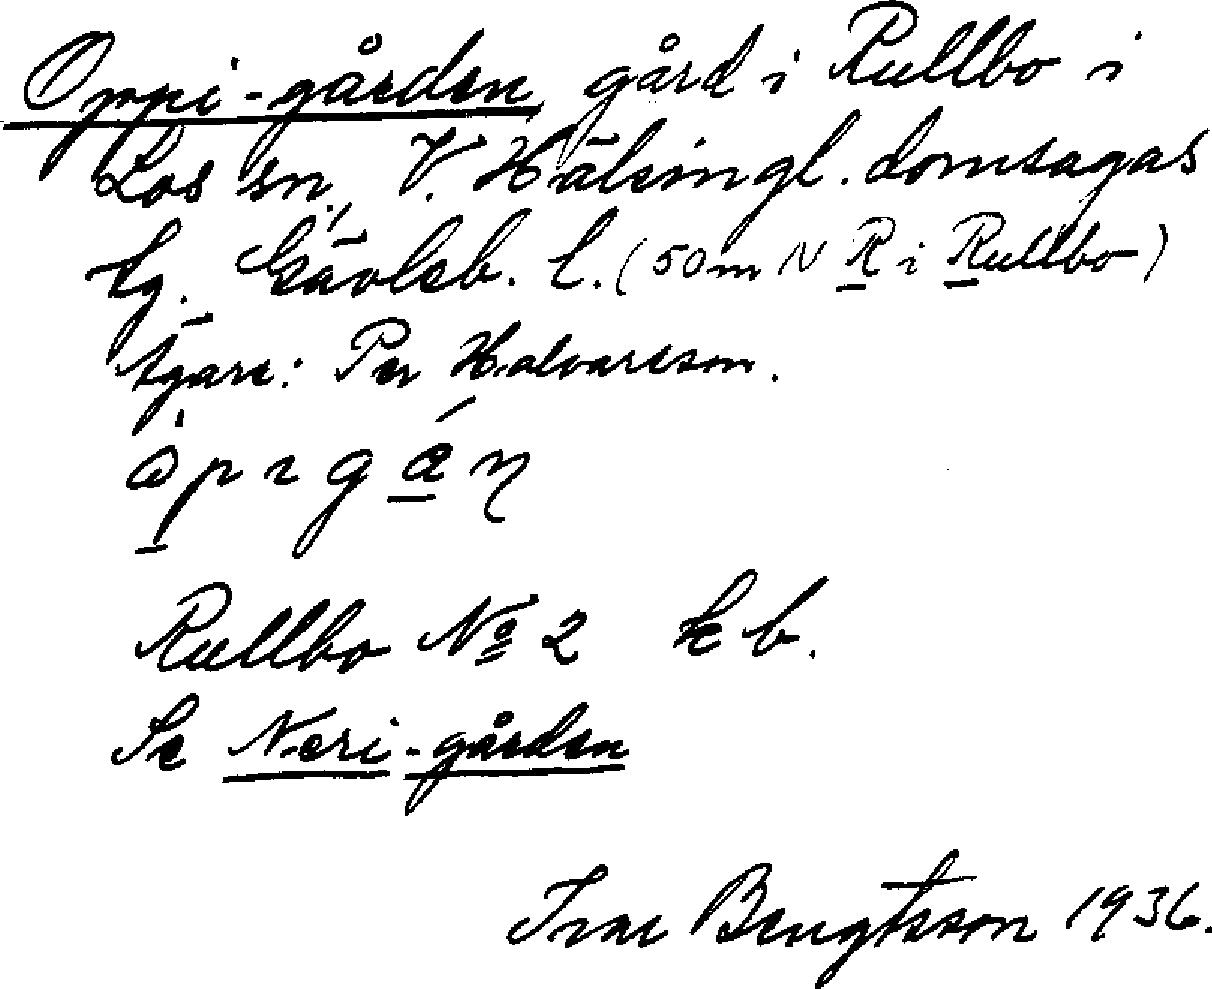 Oppi-gården, gård i Rullbo i
Los sn., V. Hälsingl. domsagas
tg. Gävleb. l. (50 m N R i Rullbo)
Ägare: Per Halvarsson.
Rullbo № 2 kb.
Se Neri-gården
Ivar Bengtsson 1936.